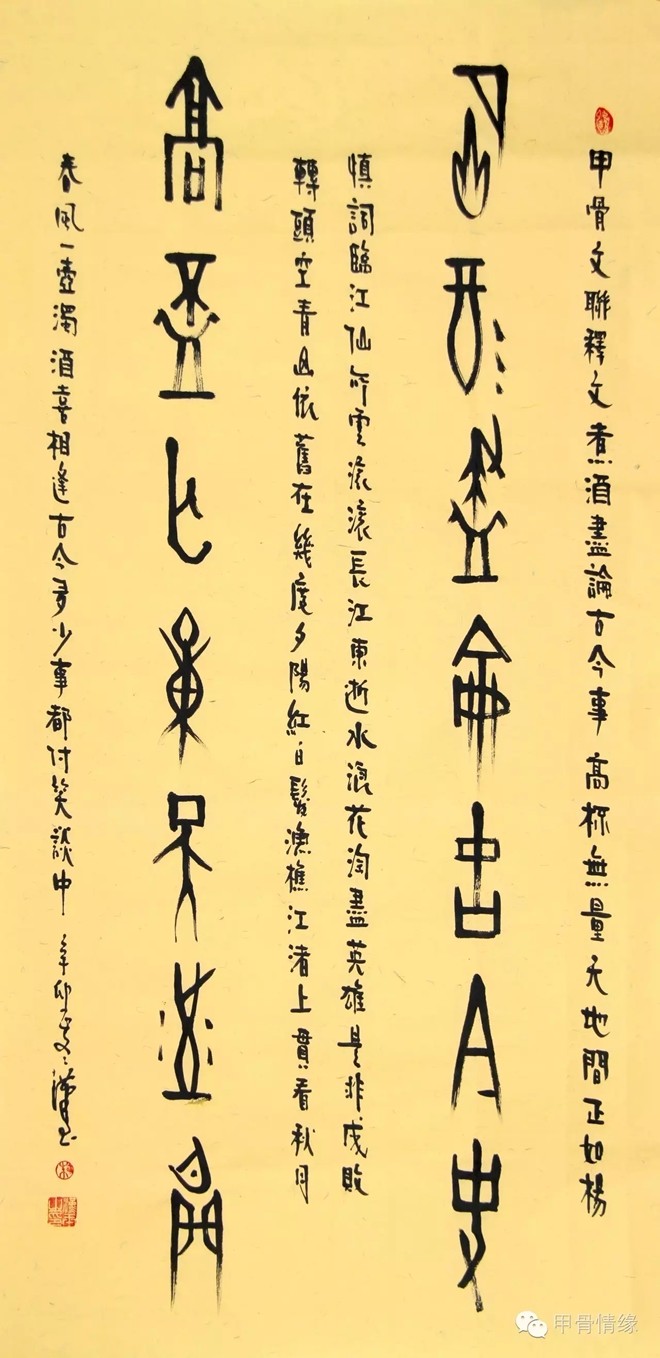 甲骨文聯釋文煮酒盡論古今事高杯無量天地間正如楊
煮酒盡論古今事
慎詞臨江仙所雲滾滾長江東逝水浪花淘盡英雄是非成敗
轉頭空青山依舊在幾度夕陽紅白髮漁樵江渚上貫看秋月
高杯無量天地間
春風一壺濁酒喜相逢古今多少事都付笑談中 辛卯
甲骨情缘